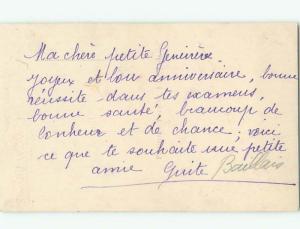 Ma chère petite Genevière
joyeux et bon anniversaire, bonne
réussite dans tes examens,
bonne santé, beaucoup de
bonheur et de chance, voici
ce que te souhaite une petite
amie